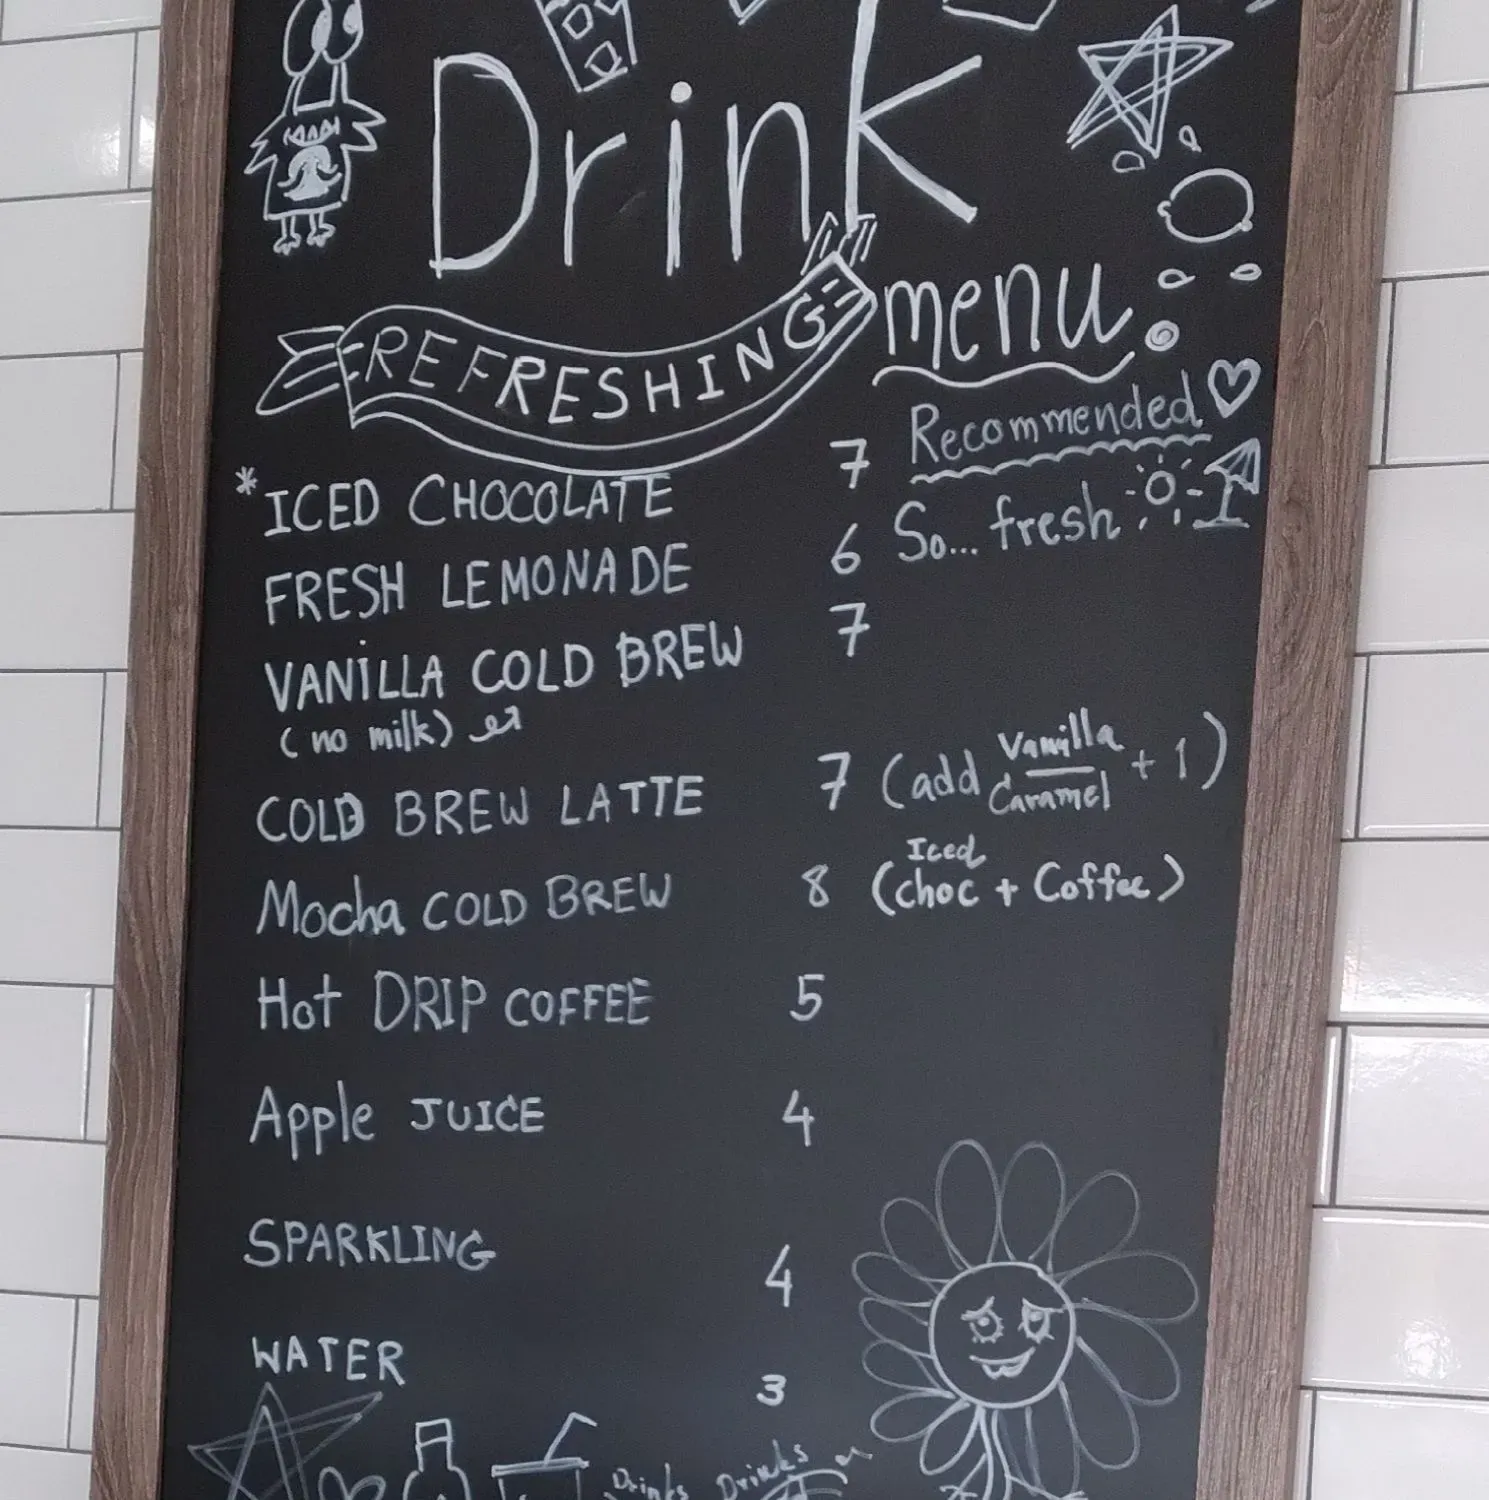 Drink
menu
REFRESHING
*ICED CHOCOLATE 7 Recommended
FRESH LEMONADE 6 So... fresh
VANiLLA COLD BREW 7
(no milk)
COLD BREW LATTE 7 (add Vanilla Caramel + 1)
Mocha COLD BREW 8 (Iced choc + Coffee)
Hot DRIP COFFEE 5
Apple JUICE 4
SPARKLING 4
WATER 3
Drinks Drinks